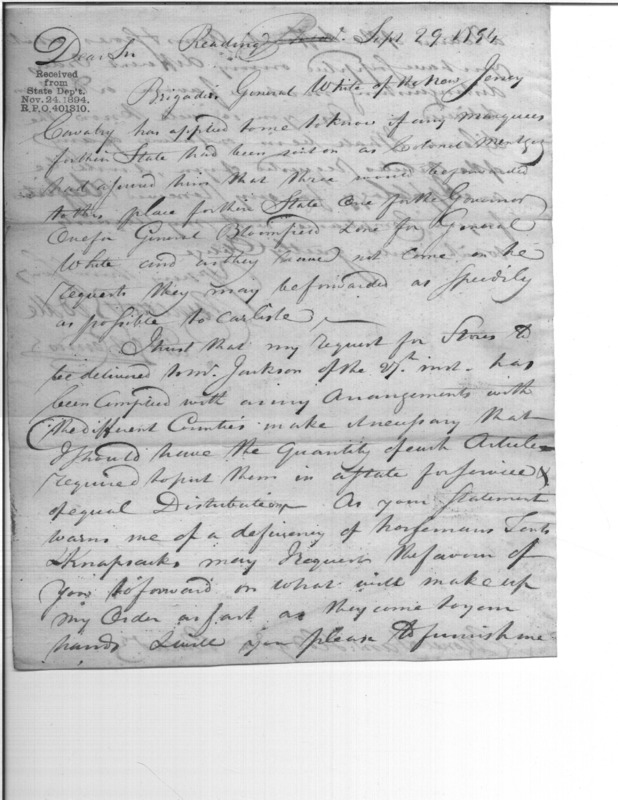 Reading Sept 29. 1794
Dear Sir
Received
from
State Dep't.
Nov. 24. 1894.
R.P.O. 401310.
Brigadier General White of the New Jersey
Cavalry has applied to me to know if any marquees
for their State had been sent on as Colonel
had assured him that three would be forwarded
to this place for their State One for the Governor
One for General Bloomfield & one for General
White and as they have not come on he
requests they may be forwarded as speedily
as possible to Carlisle
I trust that my request for Stores to
be delivered to Mr. Jackson of the 27th inst. has
been Complied with as my Arrangements with
the different Counties make it necessary that
I should have the Quantity of each Article
required to put them in a State for Service &
of equal Distribution As your Statement
warns me of a deficiency of horsemans Tents
& Knapsacks may I request the favour of
you to forward on what will make up
my Order as fast as they come to your
hands & will you please to furnish me